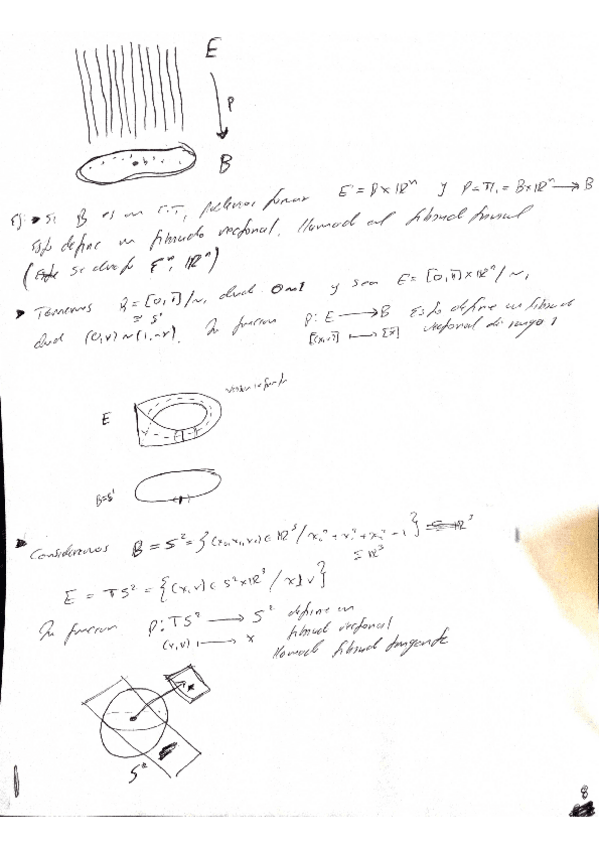 E
P
B
Ej: ▸ Si B es un e.t., podemos formar E = B × ℝⁿ y P = π₁ = B × ℝⁿ ⟶ B
Esto define un fibrado vectorial, llamado el fibrado trivial
(se denota Eⁿ, ℝⁿ)
▸ Tenemos B = [0,1]/~, donde 0~1 y sea E = [0,1] × ℝ/~,
≅ S¹
donde (0,v) ~ (1,-v). La función P: E ⟶ B Esto define un fibrado
[(x,v)] ⟼ [x] vectorial de rango 1
E
B=S¹
▸ Consideremos B = S² = {(x₀,x₁,x₂) ∈ ℝ³ / x₀² + x₁² + x₂² = 1}
⊆ ℝ³
E = TS² = {(x,v) ∈ S² × ℝ³ / x ⊥ v}
La función P: TS² ⟶ S² define un
(x,v) ⟼ x fibrado vectorial
llamado fibrado tangente
S²
8